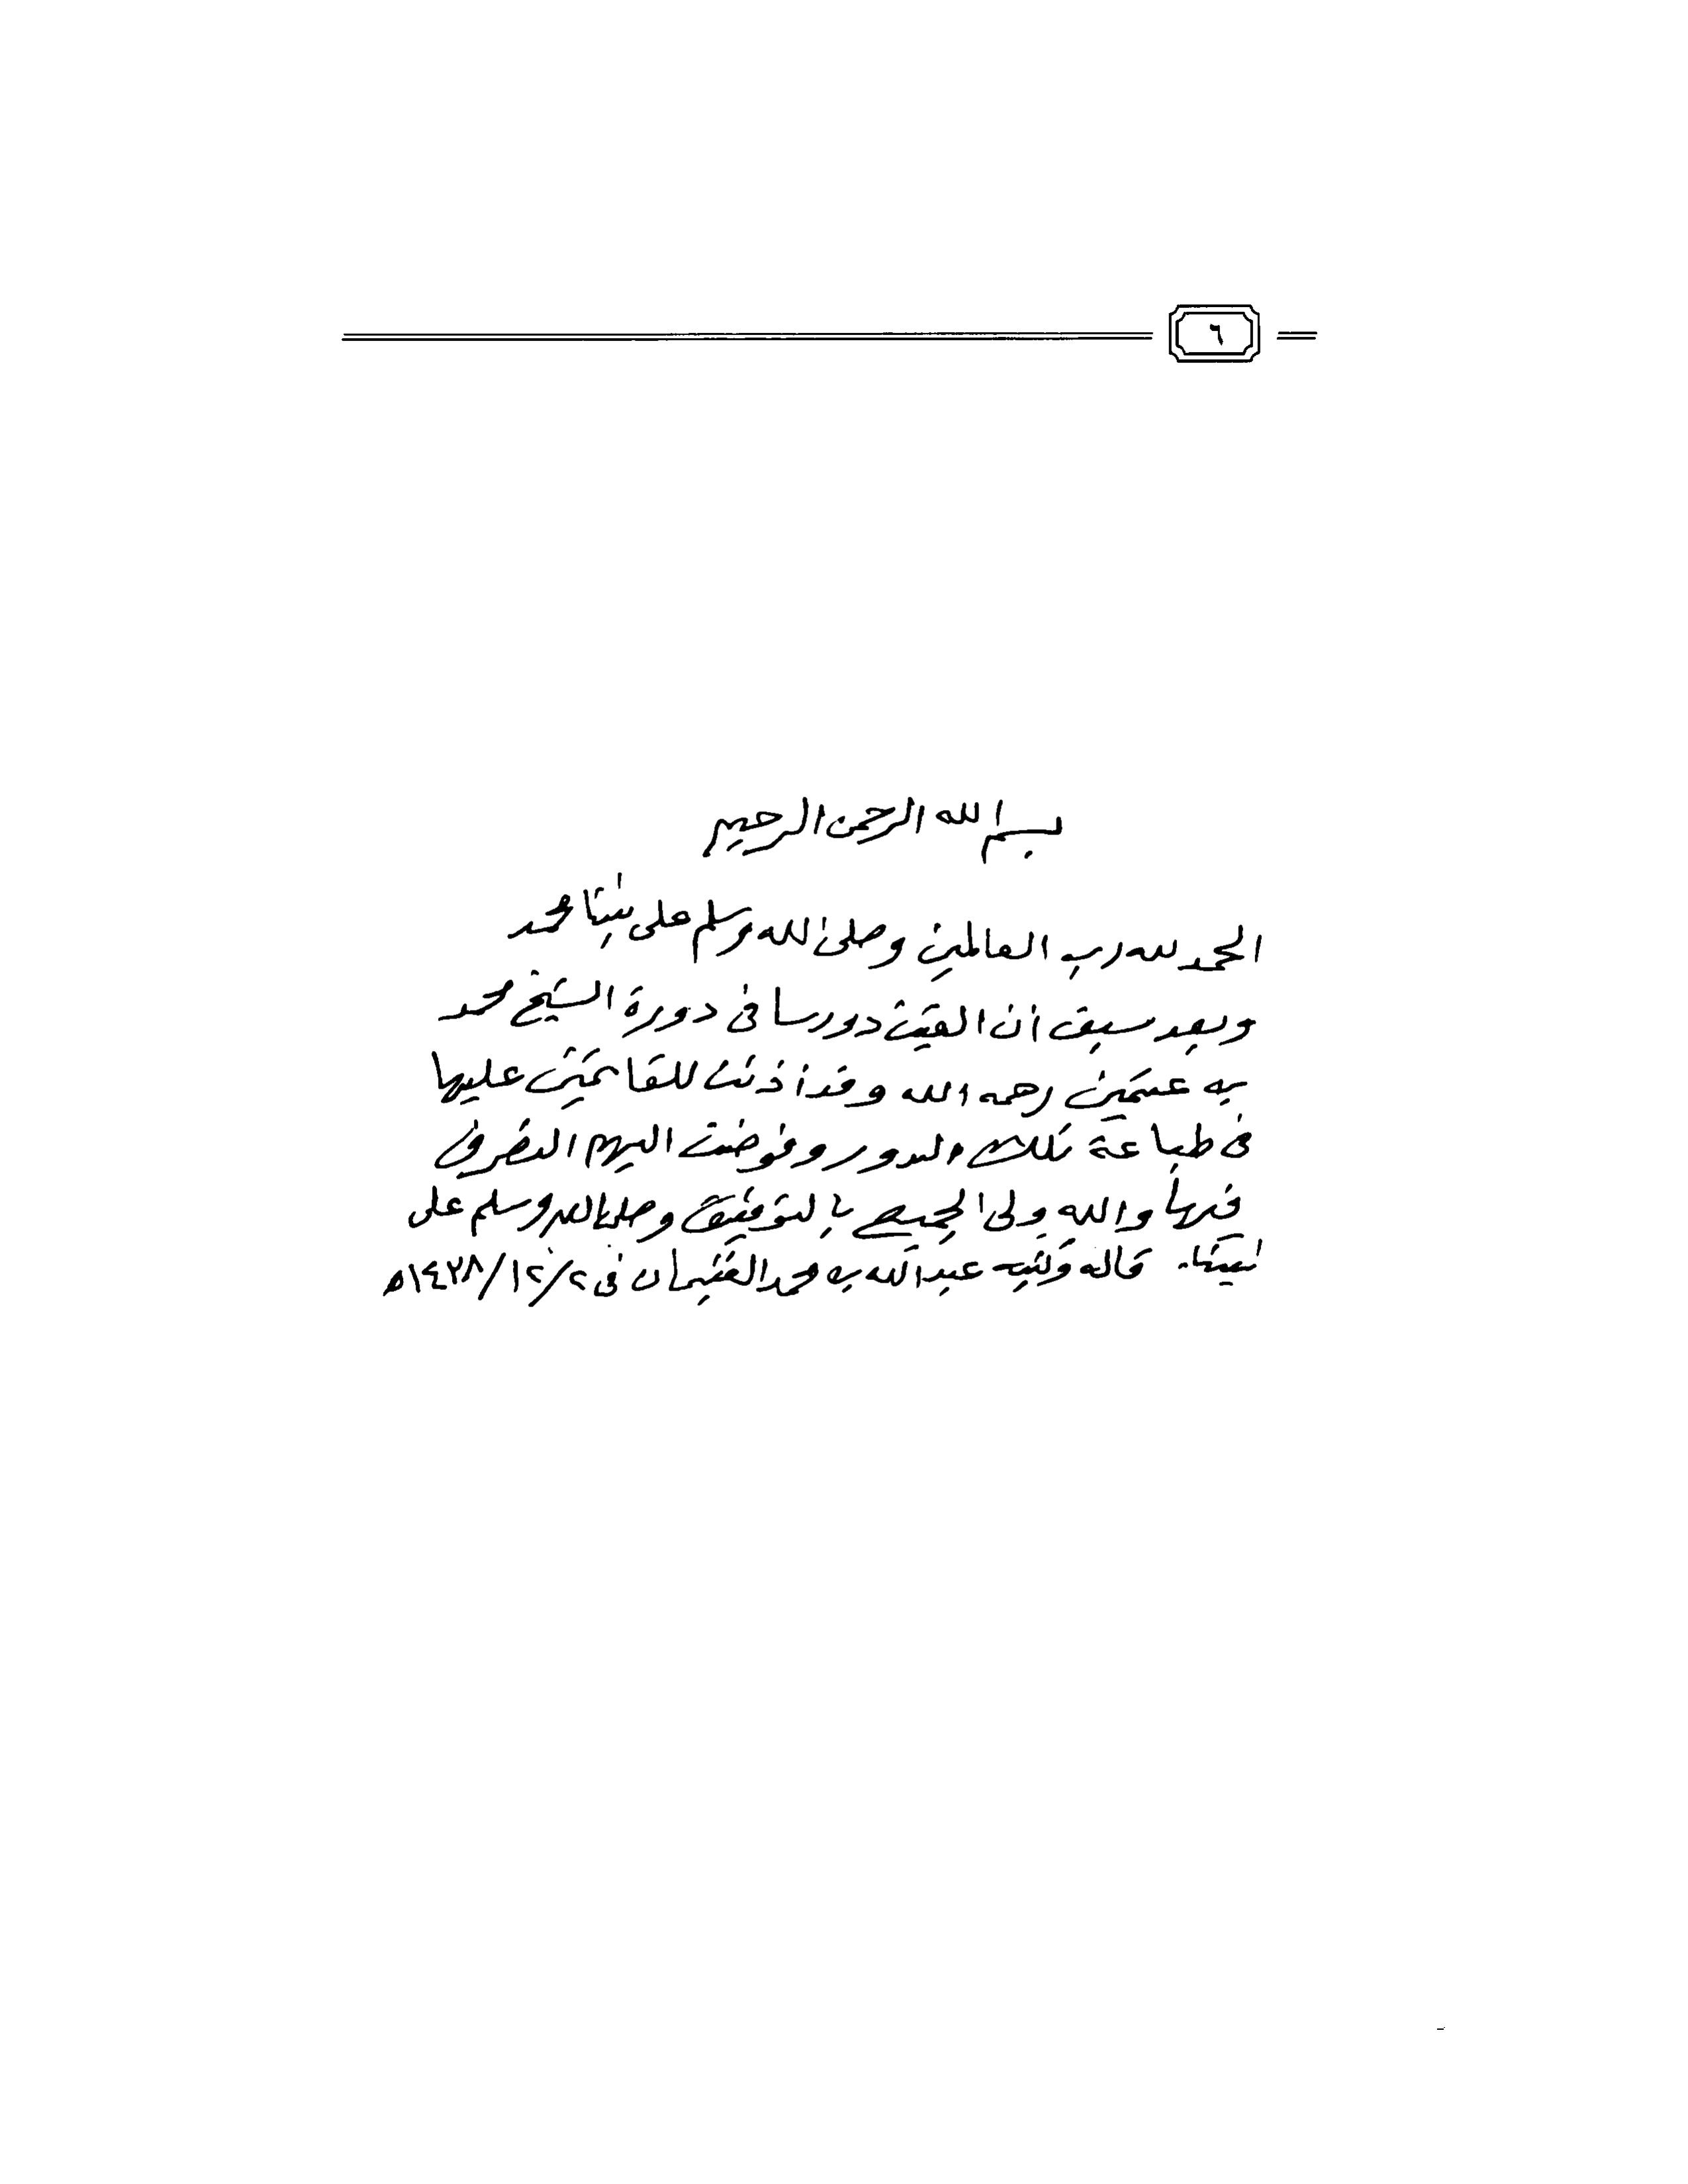 ٦
بسم الله الرحمن الرحيم
الحمد لله رب العالمين وصلى الله وسلم على نبينا محمد
وبعد سبق أن القيت دورسا فى دورة الشيخ محمد
بن عثيمين رحمه الله وقد أذنت للقائمين عليها
فى طباعة تلك الدور وفوضت اليهم النظر فى
فيها والله ولى الجميع بالتوفيق وصلى الله وسلم على
نبينا. قاله وكتبه عبد الله بن محمد الغنيمان فى ١٤٣٨/١٢/٢هـ